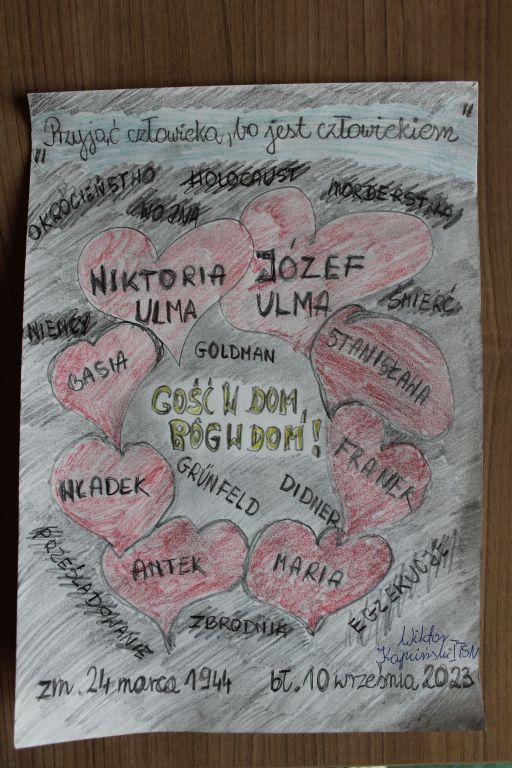 "Przyjąć człowieka, bo jest człowiekiem"
OKRÓCIEŃSTWO
HOLOCAUST
MORDERSTWA
WOJNA
WIKTORIA
ULMA
JÓZEF
ULMA
ŚMIERĆ
NIEMCY
BASIA
GOLDMAN
STANISŁAWA
GOŚĆ W DOM,
BÓG W DOM!
FRANEK
WŁADEK
GRÜNFELD
DIDNER
ANTEK
MARIA
PRZEŚLADOWANIE
ZBRODNIA
EGZEKUCJE
Wiktor
zm. 24 marca 1944
bł. 10 września 2023